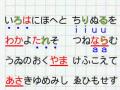 いろはにほへと ちりぬるを
i i u u
わかよたれそ つねならむ
u u
うゐのおくやま けふこえて
あさきゆめみし ゑひもせす